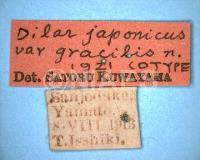 Dilar japonicus
var gracilis n.
1921 COTYPE
Det. SATORU KUWAYAMA
Sanjodake,
Yamato,
8-VIII 1915
T. Isshiki.